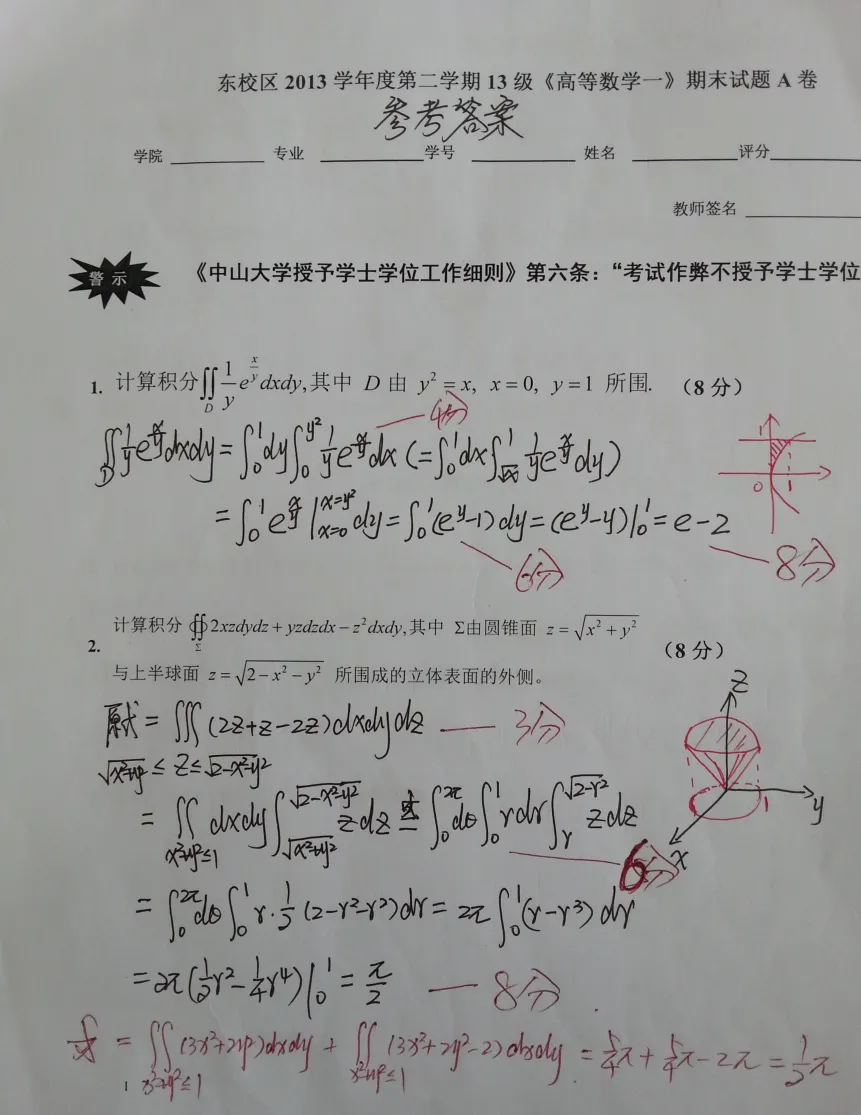 东校区 2013 学年度第二学期 13 级《高等数学一》期末试题 A 卷
参考答案
学院 ________ 专业 ________ 学号 ________ 姓名 ________ 评分 ________
教师签名 ________
警示 《中山大学授予学士学位工作细则》第六条：“考试作弊不授予学士学位
1. 计算积分∬_D (1/y) e^{x/y} dxdy, 其中 D 由 y² = x, x = 0, y = 1 所围. （8 分）
∬_D (1/y) e^{x/y} dxdy = ∫_0^1 dy ∫_0^{y²} (1/y) e^{x/y} dx (= ∫_0^1 dx ∫_{√x}^1 (1/y) e^{x/y} dy) 4分
1 0 1
= ∫_0^1 e^{x/y} |_{x=0}^{x=y²} dy = ∫_0^1 (e^y-1) dy = (e^y-y)|_0^1 = e-2
6分 8分
2. 计算积分 ∯_Σ 2xzdydz + yzdzdx − z²dxdy, 其中 Σ由圆锥面 z = √(x² + y²)
与上半球面 z = √(2 − x² − y²) 所围成的立体表面的外侧。 （8 分）
原式 = ∭_{√(x²+y²) ≤ z ≤ √(2-x²-y²)} (2z+z-2z) dxdydz 3分
z y x 1
= ∬_{x²+y²≤1} dxdy ∫_{√(x²+y²)}^{√(2-x²-y²)} zdz = ∫_0^{2π} dθ ∫_0^1 rdr ∫_r^{√(2-r²)} zdz 6分
= ∫_0^{2π} dθ ∫_0^1 r·(1/2)(2-r²-r²)dr = 2π ∫_0^1 (r-r³) dr
= 2π((1/2)r² - (1/4)r⁴)|_0^1 = π/2 8分
= ∬_{x²+y²≤1} (3x²+2y²)dxdy + ∬_{x²+y²≤1} (3x²+2y²-2)dxdy = (5/4)π + (5/4)π - 2π = (1/2)π
1